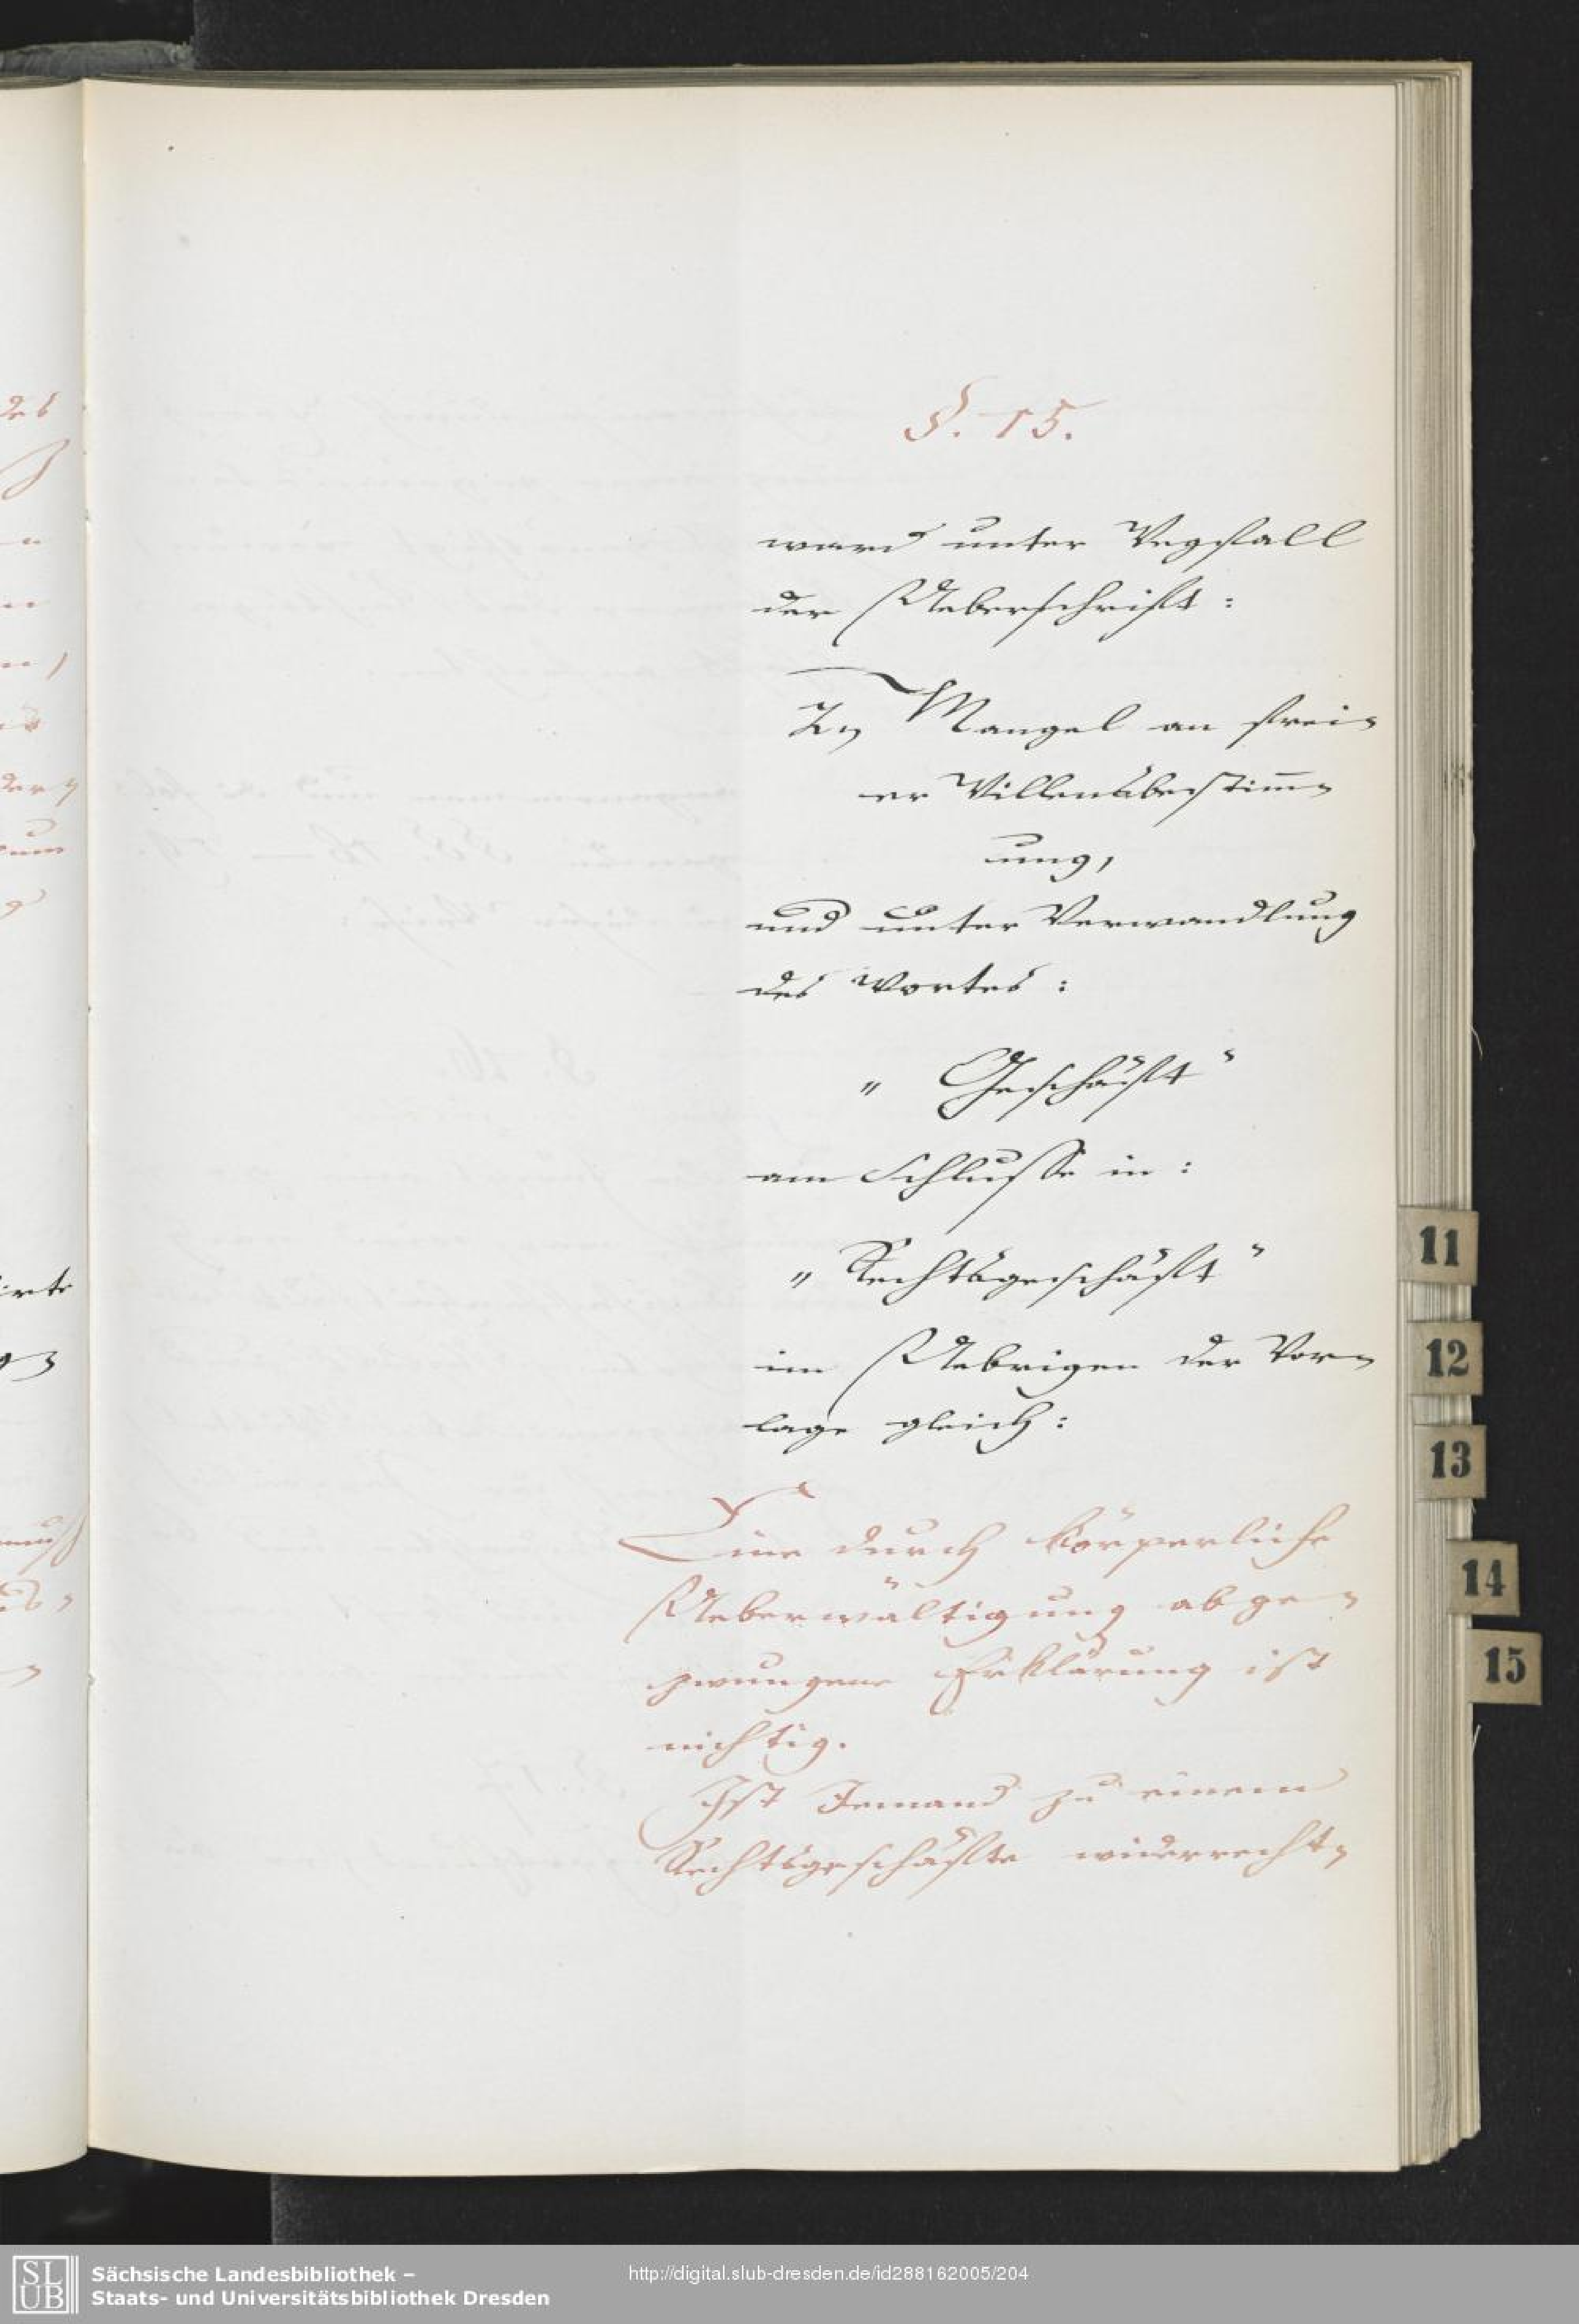 §. 15.
ward unter Wegfall
der Ueberschrift:
2., Mangel an frei-
er Willensbestim̅-
ung,
und unter Verwandlung
des Wortes:
„Geschäft"
am Schlusse in:
„Rechtsgeschäft"
im Uebrigen der Vor-
lage gleich:
Eine durch körperliche
Ueberwältigung abge-
zwungene Erklärung ist
nichtig.
Ist Jemand zu einem
Rechtsgeschäfte widerrecht-
11
12
13
14
15
SLUB
Sächsische Landesbibliothek –
Staats- und Universitätsbibliothek Dresden
http://digital.slub-dresden.de/id288162005/204